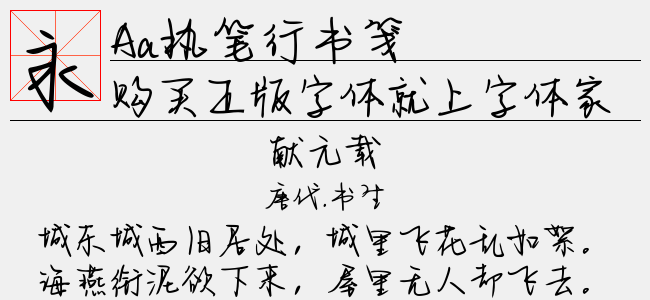 永
Aa执笔行书笺
购买正版字体就上字体家
献元载
唐代.书生
城东城西旧居处，城里飞花乱如絮。
海燕衔泥欲下来，屋里无人却飞去。